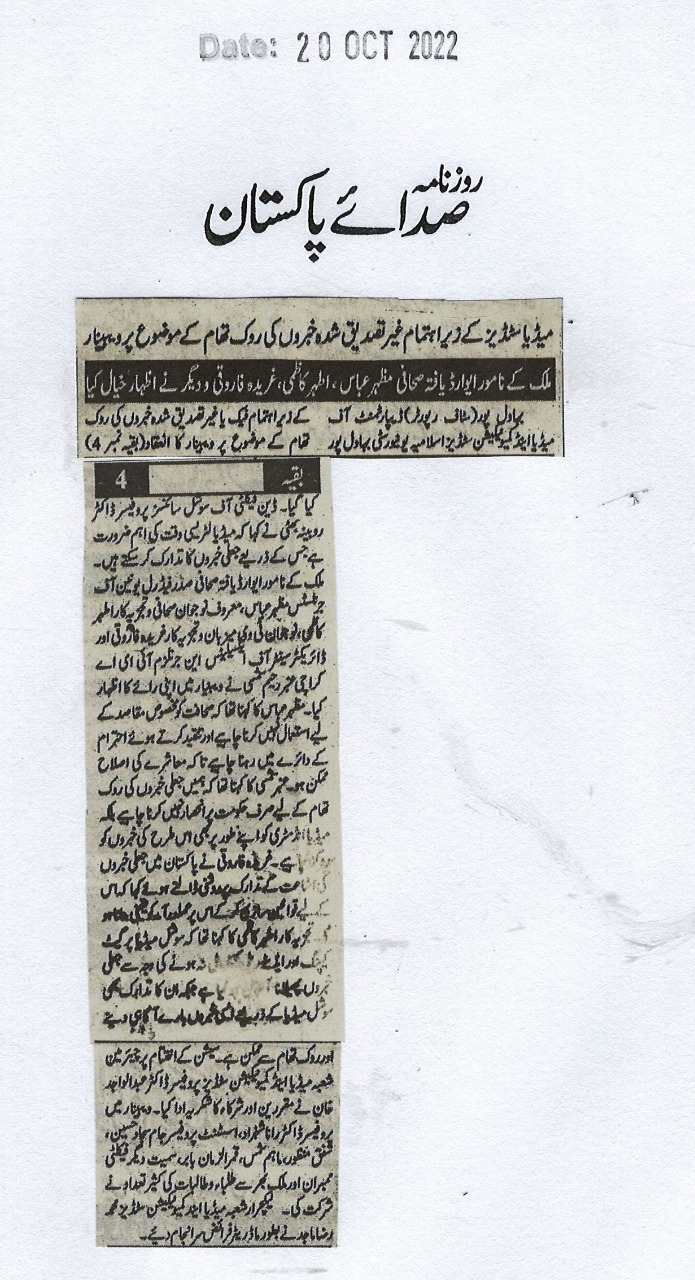 Date: 20 OCT 2022
روزنامہ
صدائے پاکستان
میڈیا سٹڈیز کے زیر اہتمام غیر تصدیق شدہ خبروں کی روک تھام کے موضوع پر ویبینار
ملک کے نامور ایوارڈ یافتہ صحافی مظہر عباس، اطہر کاظمی، غریدہ فاروقی و دیگر نے اظہار خیال کیا
بہاول پور (سٹاف رپورٹر) ڈیپارٹمنٹ آف
میڈیا اینڈ کمیونیکیشن سٹڈیز اسلامیہ یونیورسٹی بہاول پور
کے زیر اہتمام فیک یا غیر تصدیق شدہ خبروں کی روک
تھام کے موضوع پر ویبینار کا انعقاد (بقیہ نمبر 4)
بقیہ 4
کیا گیا۔ ڈین فیکلٹی آف سوشل سائنسز پروفیسر ڈاکٹر
روبینہ بھٹی نے کہا کہ میڈیا لٹریسی وقت کی اہم ضرورت
ہے جس کے ذریعے جعلی خبروں کا تدارک کر سکتے ہیں۔
ملک کے نامور ایوارڈ یافتہ صحافی صدر فیڈرل یونین آف
جرنلسٹس مظہر عباس، معروف نوجوان صحافی و تجزیہ کار اطہر
کاظمی، نوجوان ٹی وی میزبان و تجزیہ کار غریدہ فاروقی اور
ڈائریکٹر سینٹر آف ایکسیلینس ان جرنلزم آئی بی اے
کراچی عنبر رحیم شمسی نے ویبینار میں اپنی رائے کا اظہار
کیا۔ مظہر عباس کا کہنا تھا کہ صحافت کو مخصوص مقاصد کے
لیے استعمال نہیں کرنا چاہیے اور تنقید کرتے ہوئے احترام
کے دائرے میں رہنا چاہیے تاکہ معاشرے کی اصلاح
ممکن ہو۔ عنبر شمسی کا کہنا تھا کہ ہمیں جعلی خبروں کی روک
تھام کے لیے صرف حکومت پر انحصار نہیں کرنا چاہیے بلکہ
میڈیا انڈسٹری کو اپنے طور پر بھی اس طرح کی خبروں کو
ہے۔ غریدہ فاروقی نے پاکستان میں جعلی خبروں
کے تدارک پر روشنی ڈالتے ہوئے کہا کہ اس
کے لیے قوانین سازی کر کے اس پر عملدرآمد
تجزیہ کار اطہر کاظمی کا کہنا تھا کہ سوشل میڈیا پر گیٹ
کیپنگ اور نہ ہونے کی وجہ سے جعلی
ہے جبکہ ان کا تدارک بھی
سوشل میڈیا کے ذریعے بارے آگاہی دینے
اور روک تھام سے ممکن ہے۔ سیشن کے اختتام پر چیئرمین
شعبہ میڈیا اینڈ کمیونیکیشن سٹڈیز پروفیسر ڈاکٹر عبدالواجد
خان نے مقررین اور شرکاء کا شکریہ ادا کیا۔ ویبینار میں
پروفیسر ڈاکٹر رانا شہزاد، اسسٹنٹ پروفیسر جام سجاد حسین،
شفق منظور، ماہم شمس، قمر الزمان بابر، سمیت دیگر فیکلٹی
ممبران اور ملک بھر سے طلباء و طالبات کی کثیر تعداد نے
شرکت کی۔ لیکچرار شعبہ میڈیا اینڈ کمیونیکیشن سٹڈیز محمد
رضا ماجد نے بطور ماڈریٹر فرائض سرانجام دیئے۔